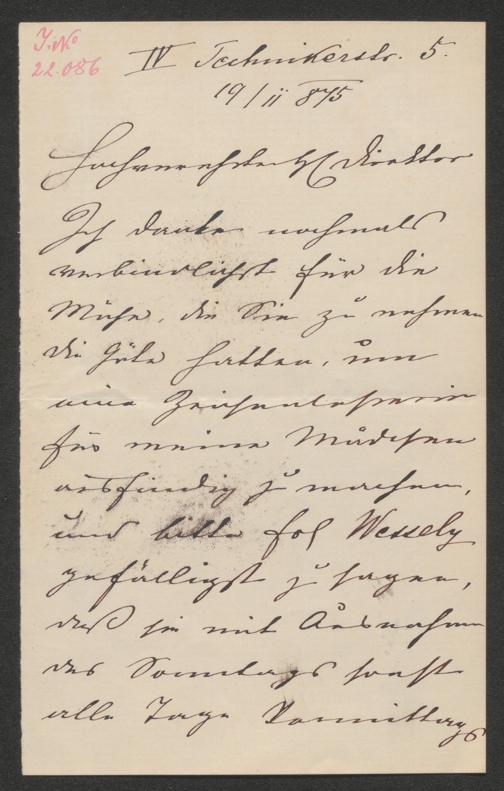 J. No
22.086
IV Technikerstr. 5.
19/ii 875
Hochverehrter H Direktor
Ich danke nochmals
verbindlichst für die
Mühe, die Sie zu nehmen
die Güte hatten, um
eine Zeichenlehrerin
für meine Mädchen
ausfindig zu machen,
und bitte Frl Wessely
gefälligst zu sagen,
daß sie mit Ausnahme
des Sonntags sonst
alle Tage Vormittags